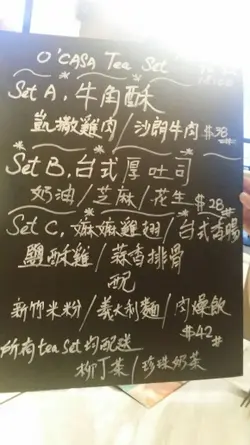 O'CASA Tea Set
Set A. 牛角酥
凱撒雞肉/沙朗牛肉 $38
Set B. 台式厚吐司
奶油/芝麻/花生 $28
Set C. 嫲嫲雞翅/台式香腸
鹽酥雞/蒜香排骨
配
新竹米粉/義大利麵/肉燥飯
$42
所有tea set均配送
柳丁茶/珍珠奶茶